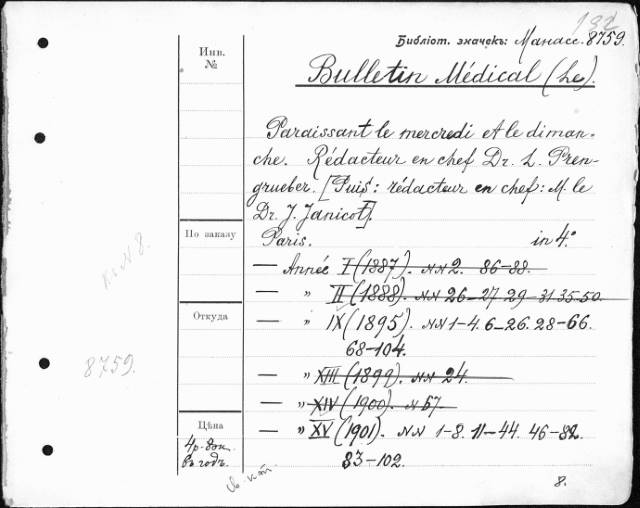 132
Библіот. значекъ: Манасс. 8759.
Инв.
№
Bulletin Médical (Le).
Paraissant le mercredi et le diman-
che. Rédacteur en chef Dr. L. Pren-
grueber. [Puis: rédacteur en chef: M. le
Dr. J. Janicot].
По заказу
Paris. in 4°
— Année I (1887). NN 2. 86-88.
— „ II (1888). NN 26-27-29-31-35-50.
Откуда
— „ IX (1895). NN 1-4. 6-26. 28-66.
68-104.
8759.
— „ XIII (1899). NN 24.
— „ XIV (1900). N 57.
Цѣна
— „ XV (1901). NN 1-8. 11-44. 46-82.
83-102.
въ годъ.
8.